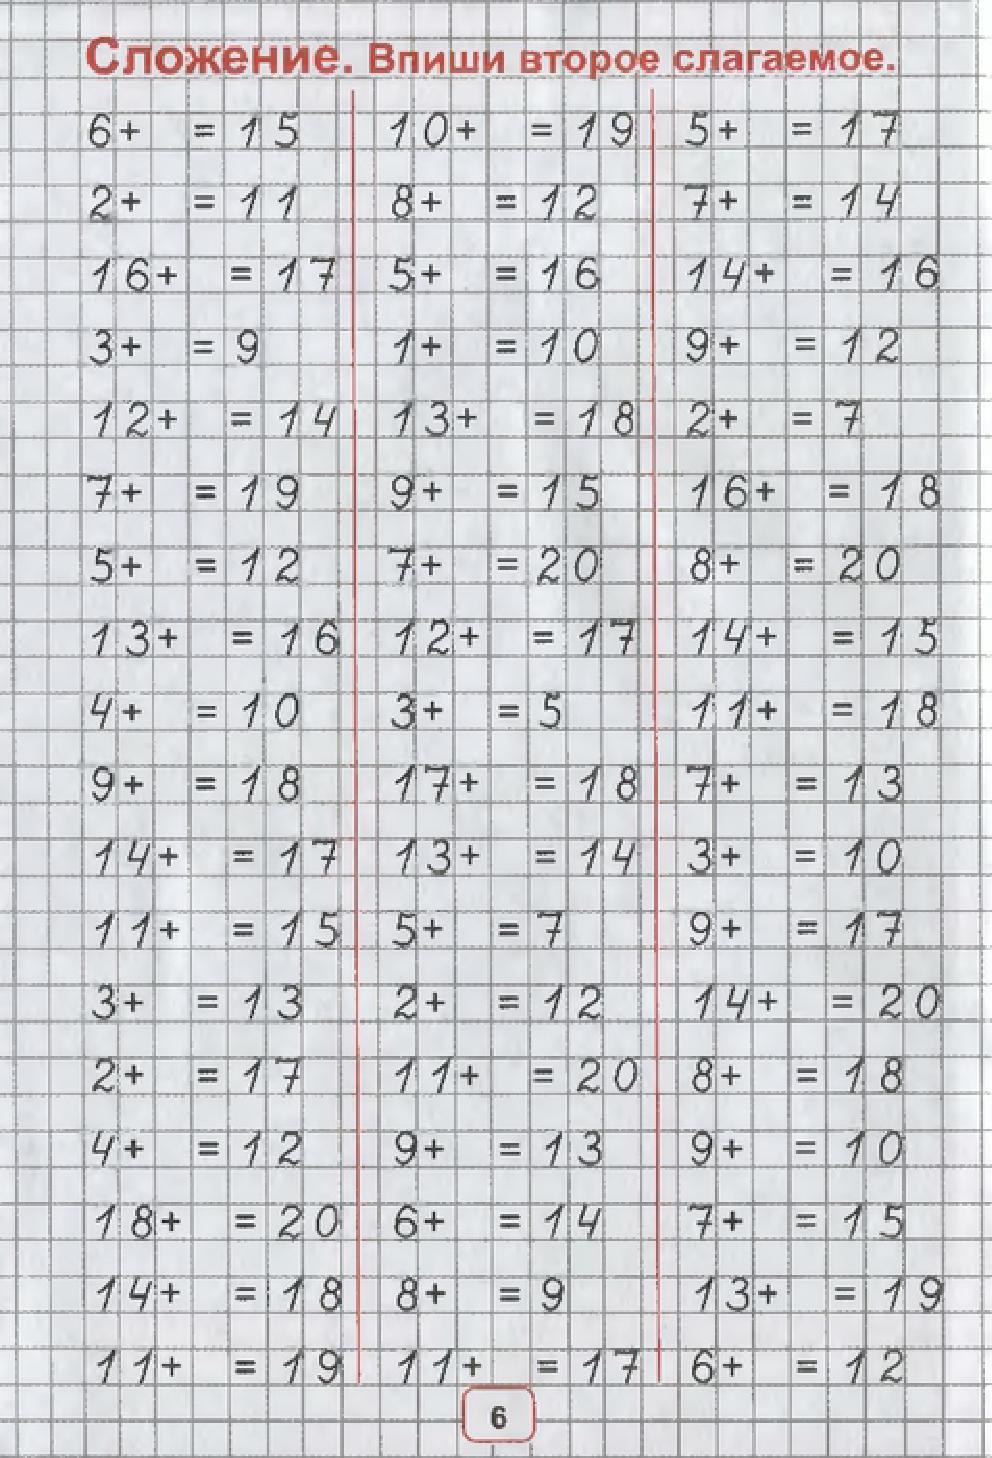 Сложение. Впиши второе слагаемое.
6+ = 15
2+ = 11
16+ = 17
3+ = 9
12+ = 14
7+ = 19
5+ = 12
13+ = 16
4+ = 10
9+ = 18
14+ = 17
11+ = 15
3+ = 13
2+ = 17
4+ = 12
18+ = 20
14+ = 18
11+ = 19
10+ = 19
8+ = 12
5+ = 16
1+ = 10
13+ = 18
9+ = 15
7+ = 20
12+ = 17
3+ = 5
17+ = 18
13+ = 14
5+ = 7
2+ = 12
11+ = 20
9+ = 13
6+ = 14
8+ = 9
11+ = 17
5+ = 17
7+ = 14
14+ = 16
9+ = 12
2+ = 7
16+ = 18
8+ = 20
14+ = 15
11+ = 18
7+ = 13
3+ = 10
9+ = 17
14+ = 20
8+ = 18
9+ = 10
7+ = 15
13+ = 19
6+ = 12
6